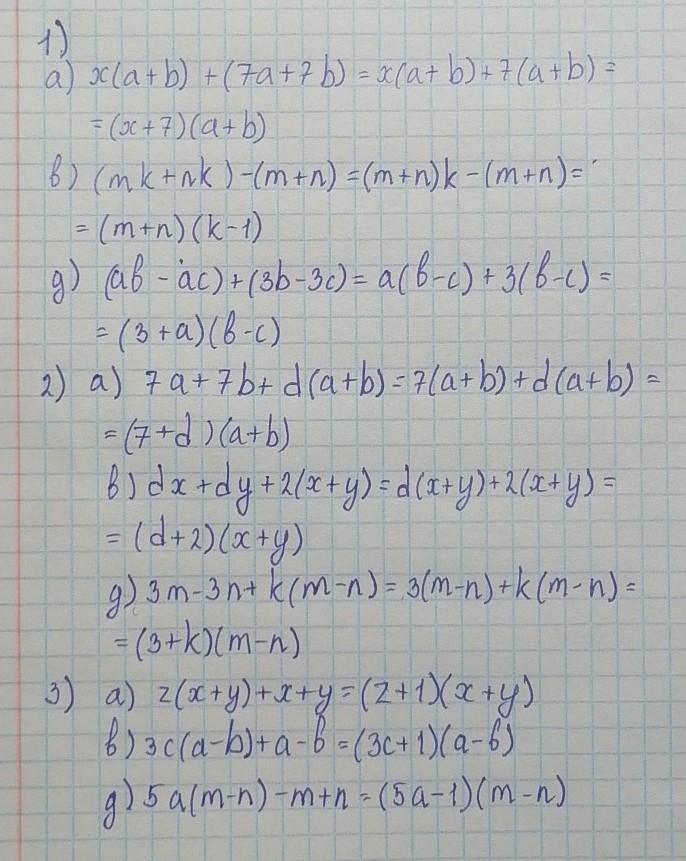 1)
а) x(a+b) + (7a+7b) = x(a+b)+7(a+b) =
= (x+7)(a+b)
в) (mk+nk) - (m+n) = (m+n)k - (m+n) =
= (m+n)(k-1)
д) (ab - ac) + (3b-3c) = a(b-c) + 3(b-c) =
= (3+a)(b-c)
2) а) 7a+7b+d(a+b) = 7(a+b)+d(a+b) =
= (7+d)(a+b)
в) dx+dy+2(x+y) = d(x+y)+2(x+y) =
= (d+2)(x+y)
д) 3m-3n+k(m-n) = 3(m-n)+k(m-n) =
= (3+k)(m-n)
3) а) z(x+y)+x+y = (z+1)(x+y)
в) 3c(a-b)+a-b = (3c+1)(a-b)
д) 5a(m-n)-m+n = (5a-1)(m-n)